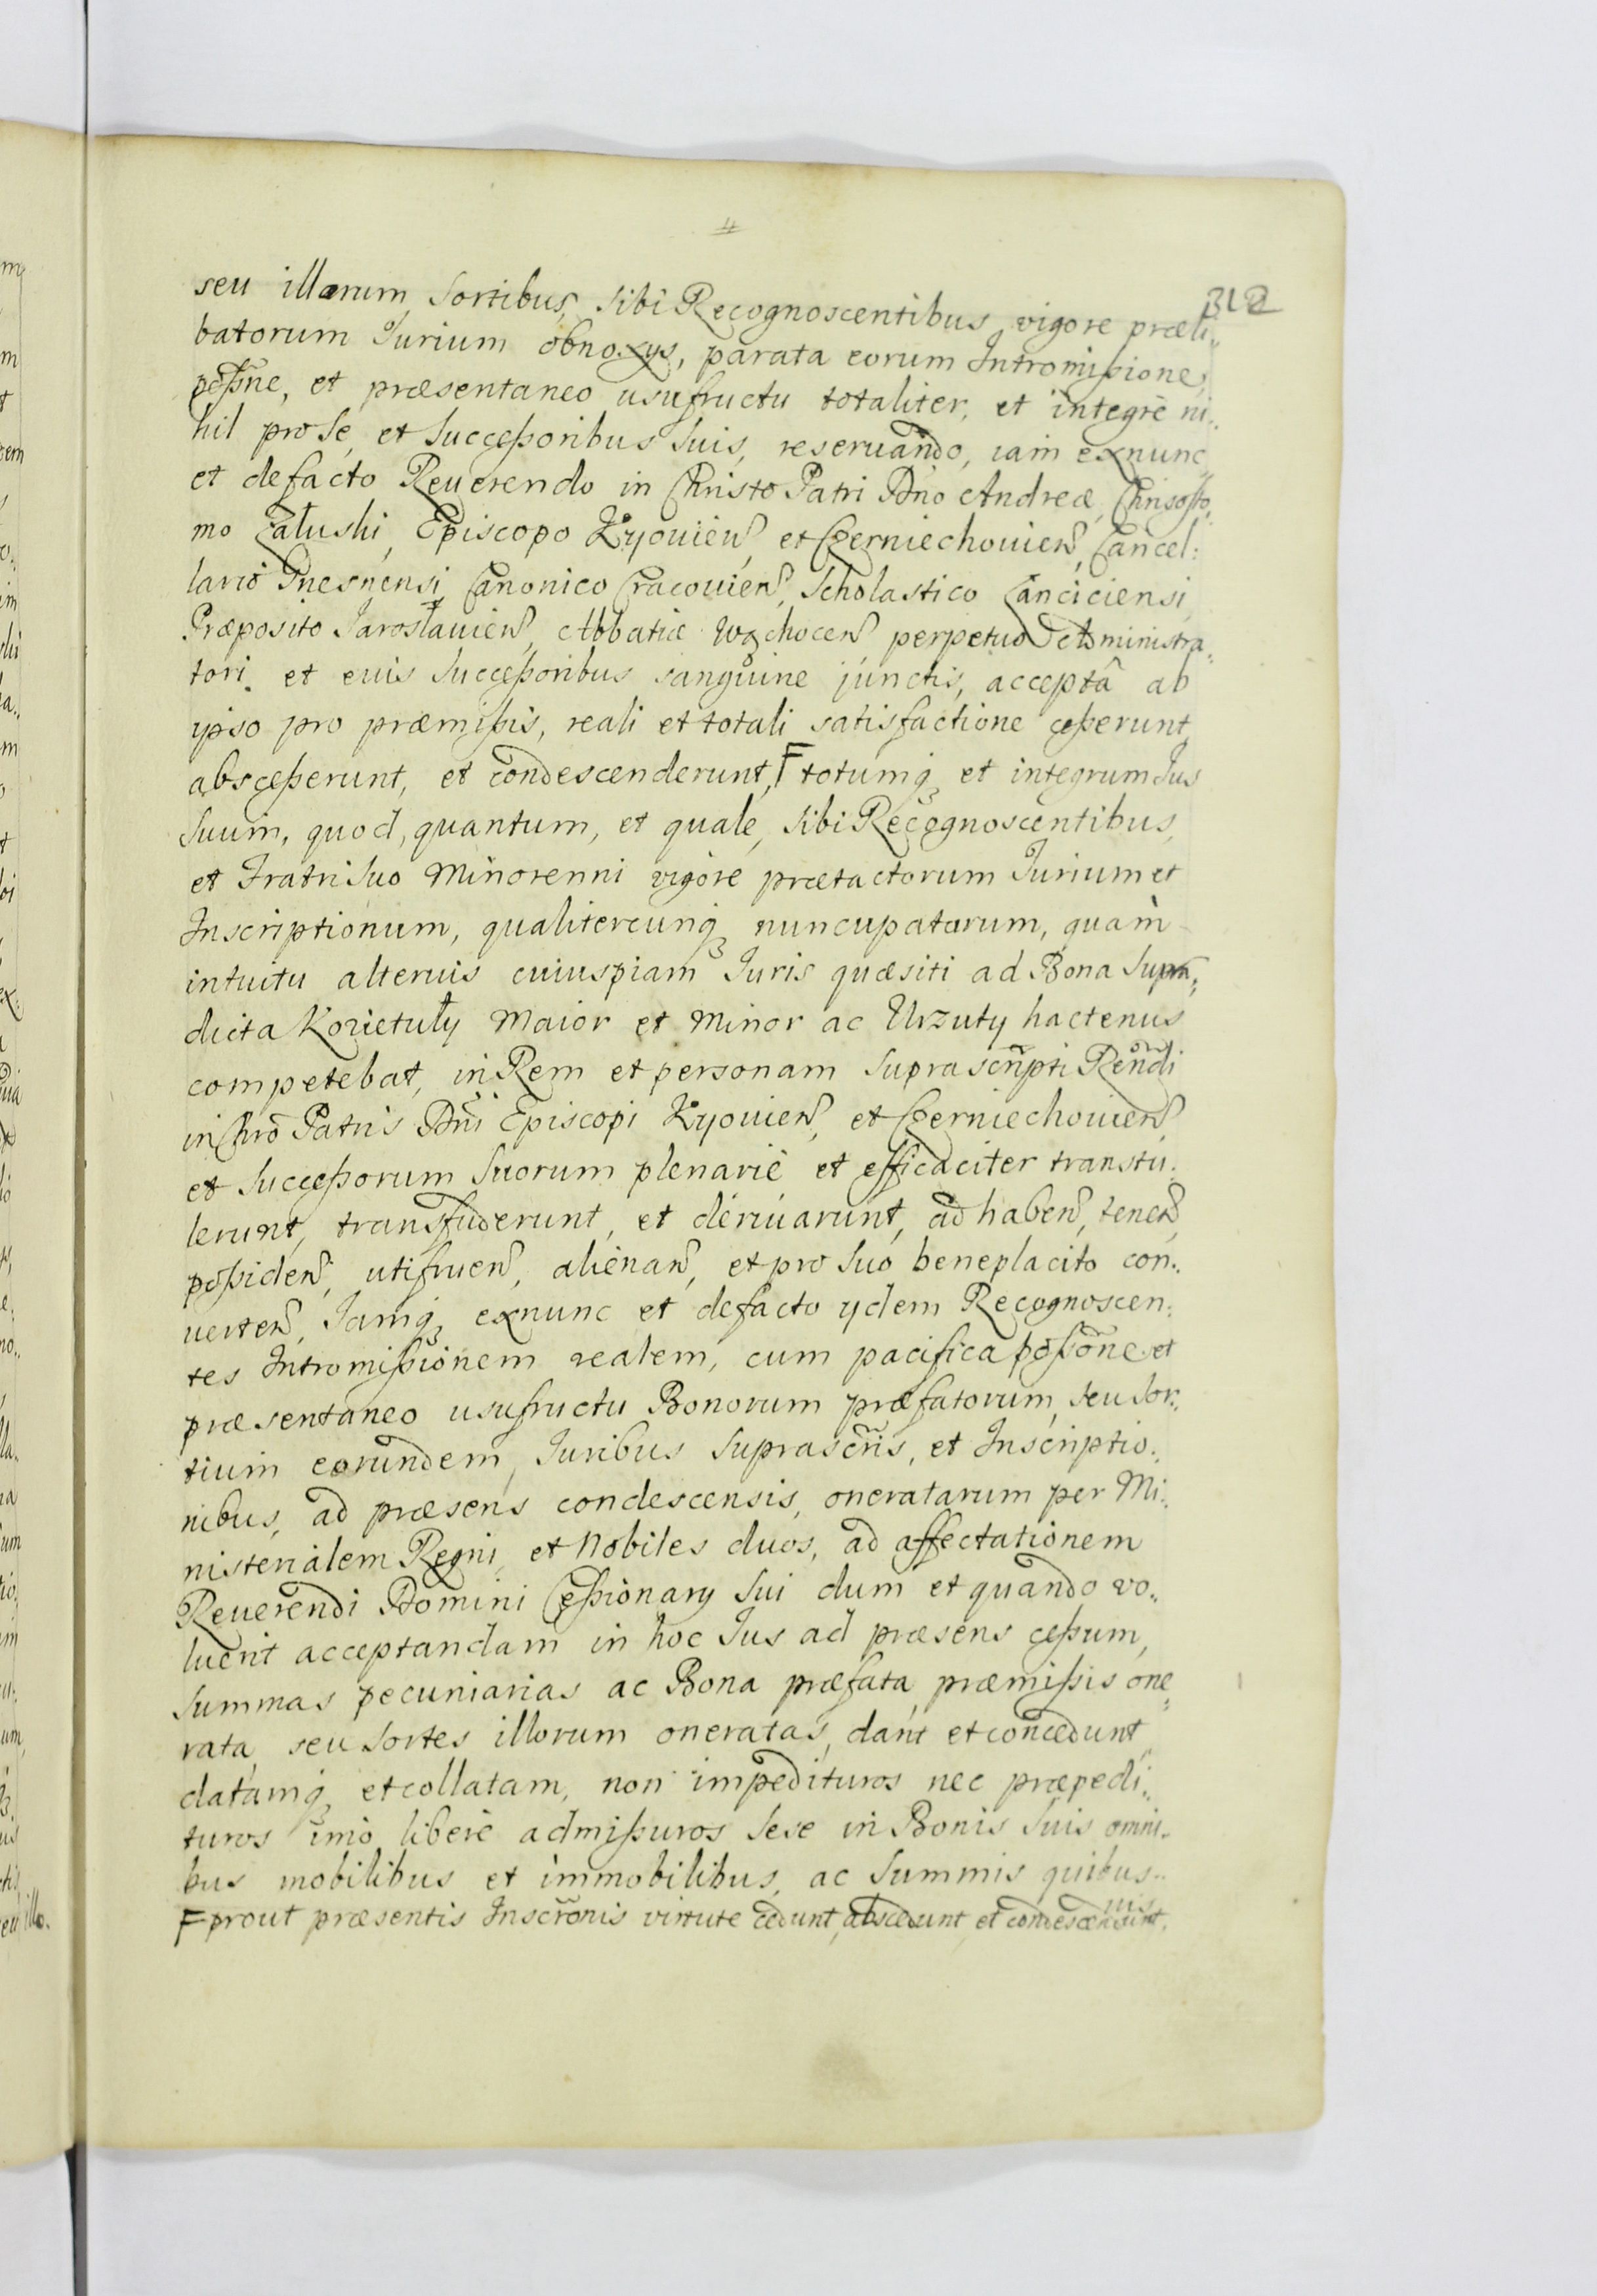 4
312
seu illorum, Sortibus, sibi Recognoscentibus vigore præli„
batorum Iurium obnoxys, parata eorum Intromißione,
poßne, et præsentaneo usufructu totaliter, et integrè ni„
hil pro Se, et Succeßoribus Suis, reseruando, iam exnunc
et defacto Reuerendo in Christo Patri Dño Andreæ, Chrisosto„
mo Załuski, Episcopo Kyouien̄, et Czerniechouien̄, Cancel:
lario Gnesnensi, Canonico Cracouien̄, Scholastico Lanciciensi,
Præposito Jarosłauien̄, Abbatiæ Wąchocen̄ perpetuo Administra„
tori. et euis Succeßoribus sanguine junctis, acceptâ ab
ypso pro præmißis, reali et totali satisfactione ceßerunt,
absceßerunt, et condescenderunt, F totumq̨ et integrum Jus
Suum, quod, quantum, et quale, Sibi Recognoscentibus,
et Fratri Suo Minorenni vigore prætactorum Iurium et
Inscriptionum, qualitercunq̨ nuncupatarum, quam
intuitu alterius cuiuspiam Iuris quæsiti ad Bona Supra„
dicta Kozietuły Maior et Minor ac Urzuty hactenus
competebat, in Rem et personam Suprascripti Rendi
in Chro Patris Dñi Episcopi Kyouien̄, et Czerniechouien̄,
et Succeßorum Suorum plenariè et efficaciter transtu„
lerunt, transfuderunt, et deriuarunt, ad haben̄, tenen̄,
poßiden̄, utifruen̄, alienan̄, et pro Suo beneplacito con„
uerten̄, Iamq̨ exnunc et defacto ydem Recognoscen„
tes Intromißionem realem, cum pacifica poßone et
præsentaneo usufructu Bonorum præfatorum, seu Sor„
tium eorundem, Iuribus Suprascris, et Inscriptio„
nibus, ad præsens condescensis, oneratarum per Mi„
nisterialem Regni, et Nobiles duos, ad affectationem
Reuerendi Domini Ceßionary Sui dum et quando vo„
luerit acceptandam in hoc Jus ad præsens ceßum,
Summas pecuniarias ac Bona præfata præmißis one„
rata, seu Sortes illorum oneratas, dant et concedunt
datamq̨ et collatam, non impedituros nec præpedi„
turos imò liberè admißuros Sese in Bonis Suis omni„
bus mobilibus et immobilibus, ac Summis quibus„
nis
F prout præsentis Inscronis virtute cedunt, abscedunt, et condescendunt.